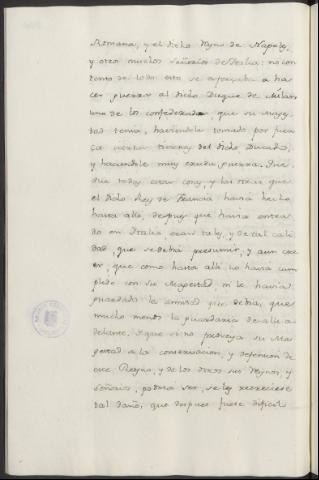 Romana, y el dicho Reyno de Napoles,
y otros muchos Señorios de Italia: no con
tento de todo esto se aparejaba a ha
cer guerra al dicho Duque de Milan
uno de los confederados, que su Mages
tad tenia, haviendole tomado por fuer
za ciertas tierras del dicho Ducado,
y haciendole muy cruda guerra. Que
que todas estas cosas, y las otras que
el dicho Rey de Francia havia hecho
hasta alli, despues que havia entra
do en Italia, eran tales, y de tal cali
dad, que se debia presumir, y aun cre
er, que como hasta alli no havia cum
plido con su Magestad, ni le havia
guardado la amistad que debia, que
mucho menos la guardaria de alli a
delante. Y que si no proveya su Ma
gestad a la conservacion, y defension de
este Reyno, y de los otros sus Reynos, y
Señorios, podria ser se les recreciese
tal daño, que despues fuese dificil